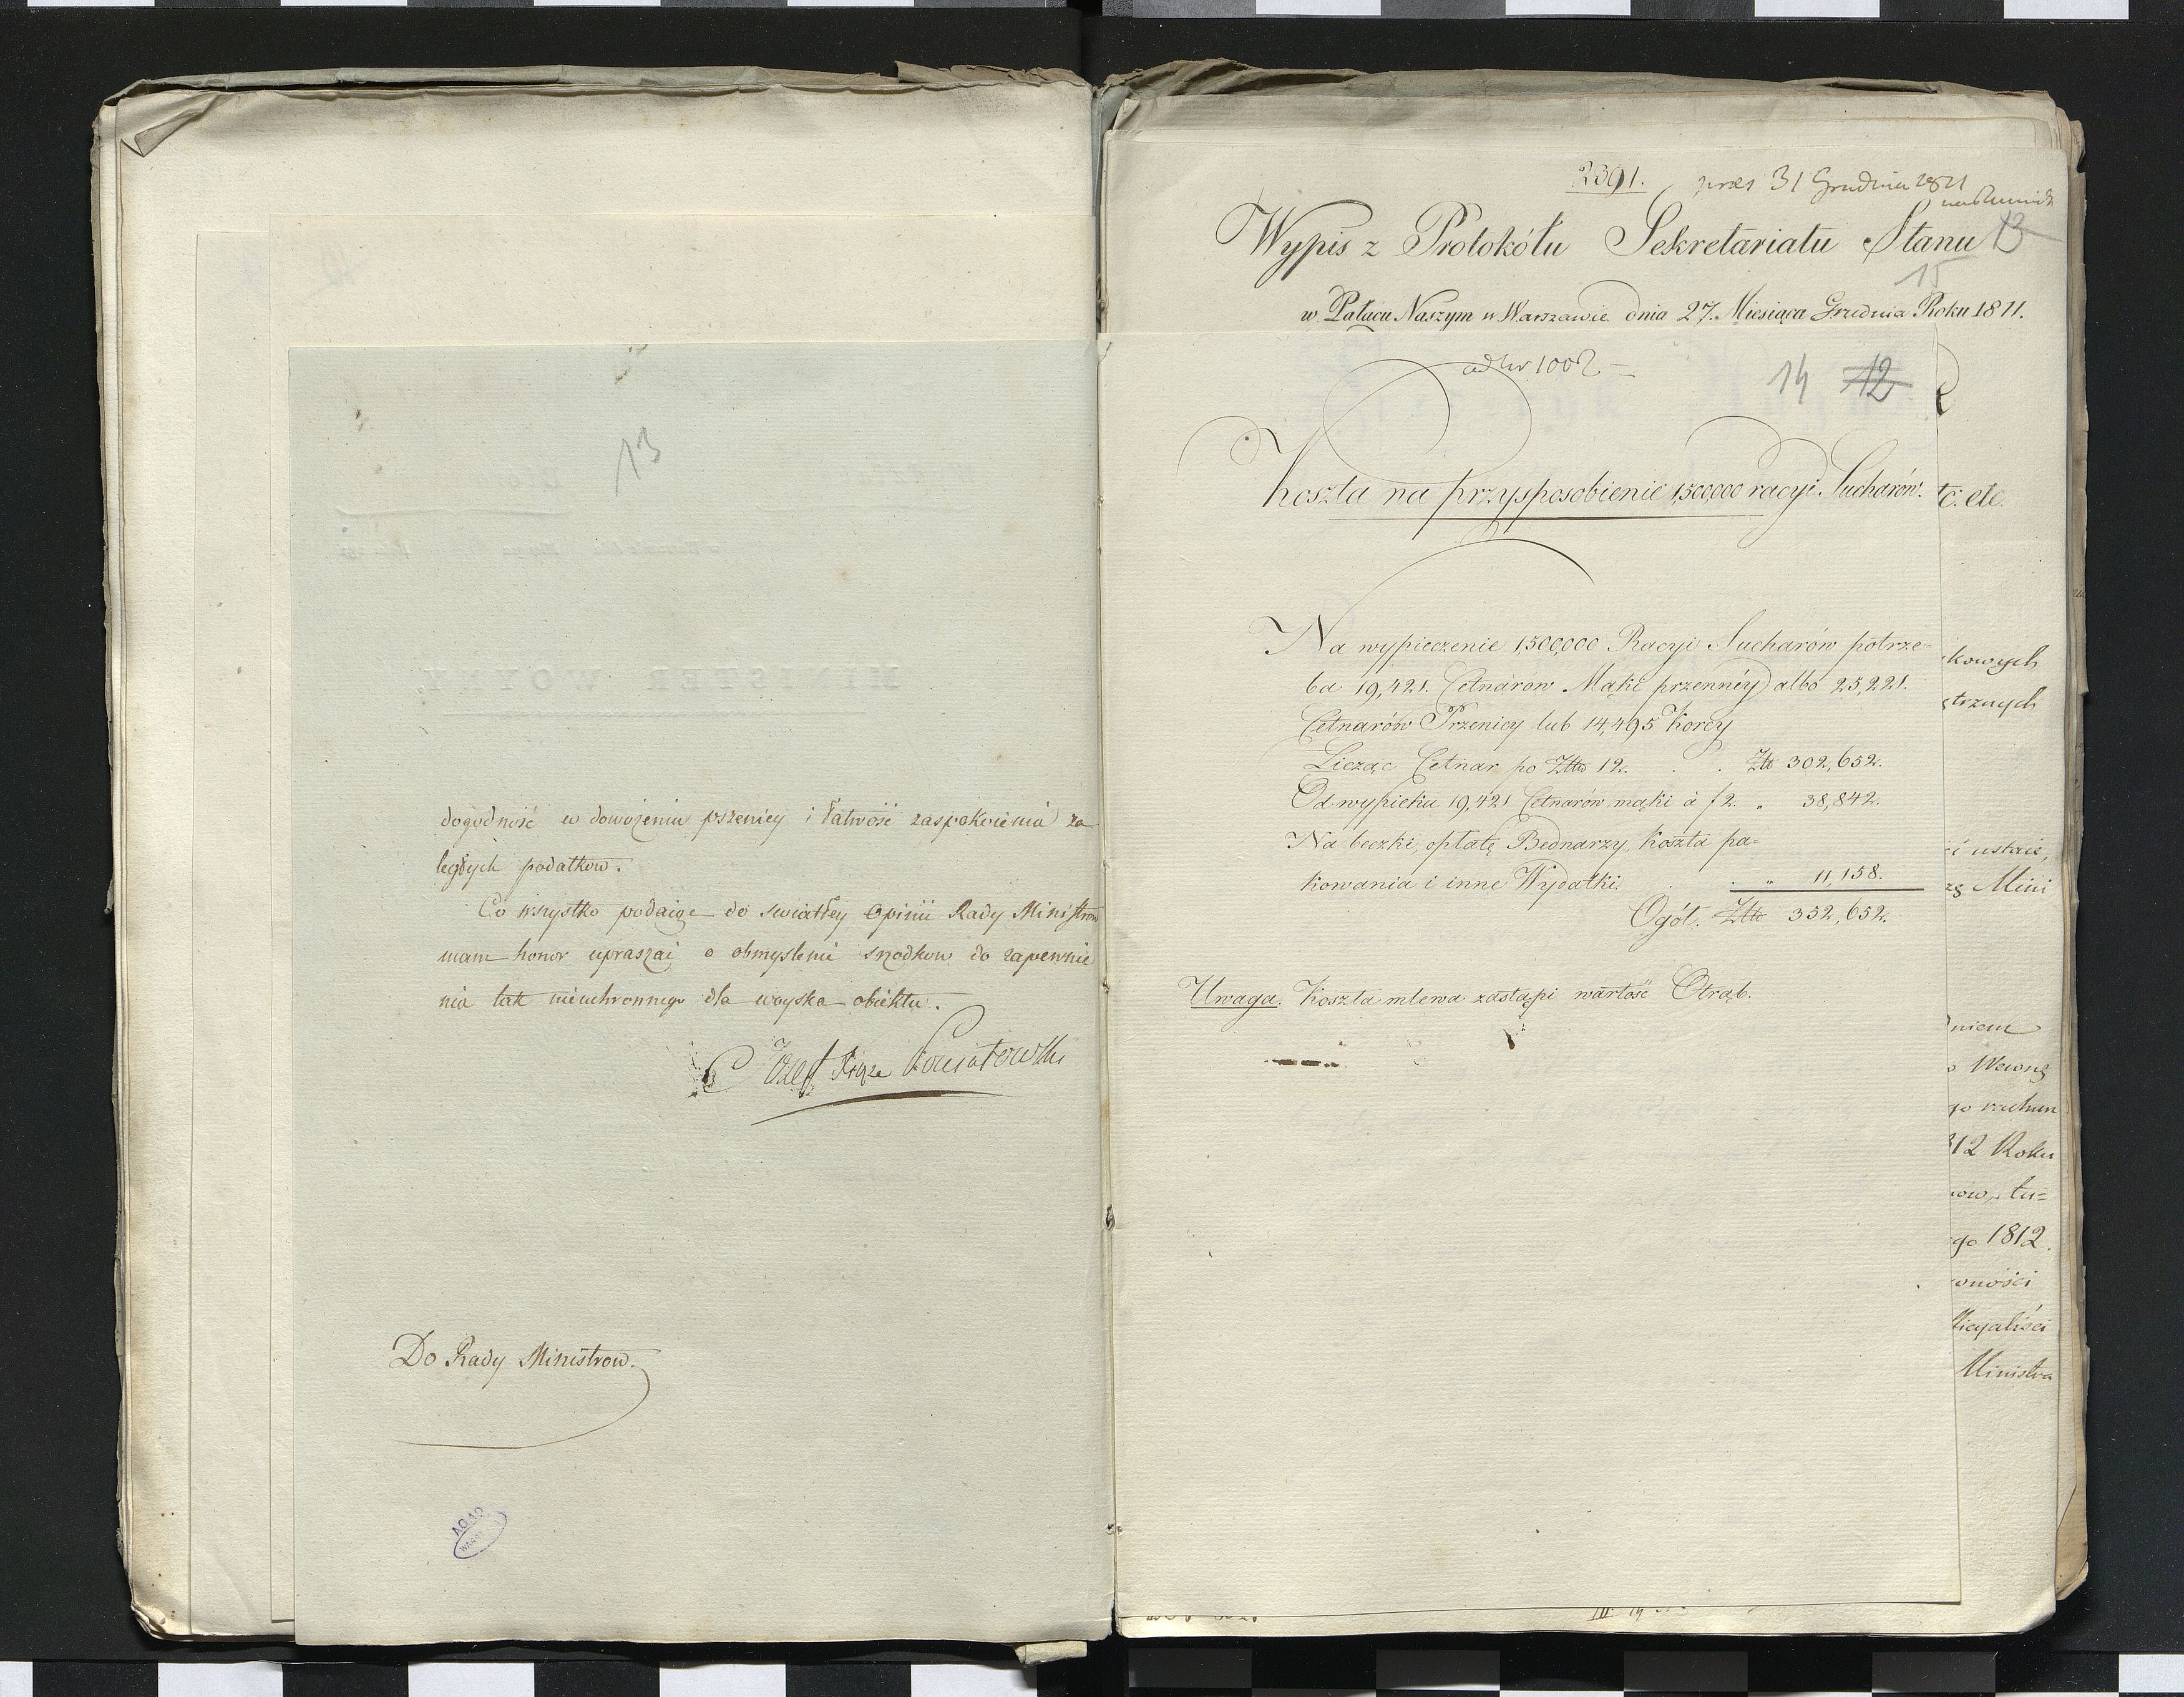 13
dogodność w dowożeniu pszenicy i łatwość zaspokoienia za
ległych podatkow.
Co wszystko podaiąc do swiatłey Opinii Rady Ministrow
mam honor upraszać o obmyslenie srzodkow do zapewnie
nia tak nieuchronnego dla woyska obiektu.
Józef Xiąże Poniatowski
Do Rady Ministrow.
2391. 31 Grudnia 1811
Wypis z Protokółu Sekretariatu Stanu 13
15
w Pałacu Naszym w Warszawie dnia 27. Miesiąca Grudnia Roku 1811.
ad Nr 1002
14 12
Koszta na przysposobienie 1,500,000 racyi Sucharów. tc. etc.
Na wypieczenie 1,500,000 Racyi Sucharów potrze-
ba 19,421. Cetnarów Mąki przennéy albo 25,221.
Cetnarów Przenicy lub 14,495 Korcy
Licząc Cetnar po Złło 12. . . Złł 302,652.
Od wypieku 19,421 Cetnarów mąki à f 2. „ 38,842.
Na beczki, opłatę Bednarzy, koszta pa=
kowania i inne Wydatki . . „ 11,158.
Ogół. Złło 352,652.
Uwaga. Koszta mlewa zastąpi wartość Otrąb.
kowych
trznych
i ustaie,
Mini
niem
Wewnę
go
812 Roku
ow, tu=
go 1812.
oności
ficyaliści
Ministra